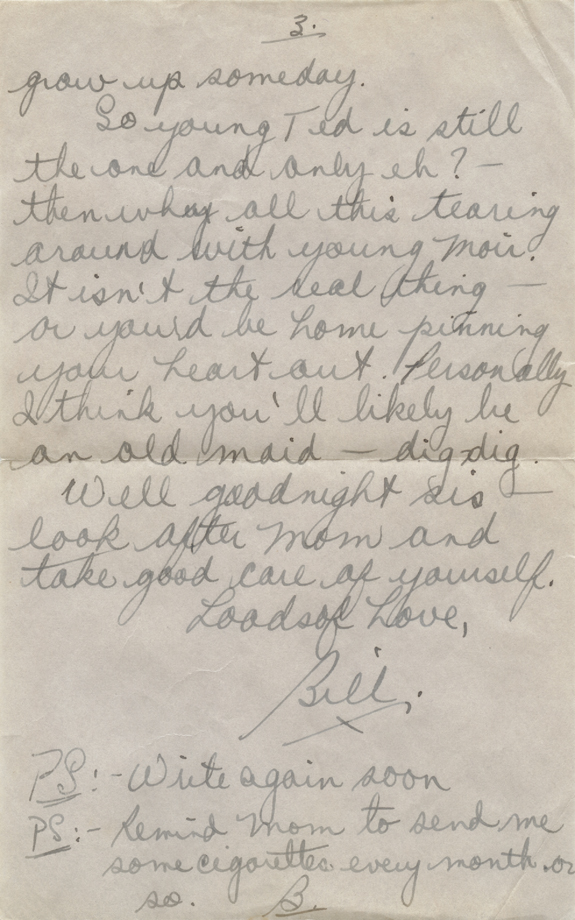 3.
grow up someday.
So young Ted is still
the one and only eh? —
then why all this tearing
around with young Moir.
It isn't the real thing —
or you'd be home pinning
your heart out. Personally
I think you'll likely be
an old maid — dig dig.
Well goodnight sis —
look after Mom and
take good care of yourself.
Loads of Love,
Bill.
PS:- Write again soon
PS:- Remind Mom to send me
some cigarettes every month or
so. B.